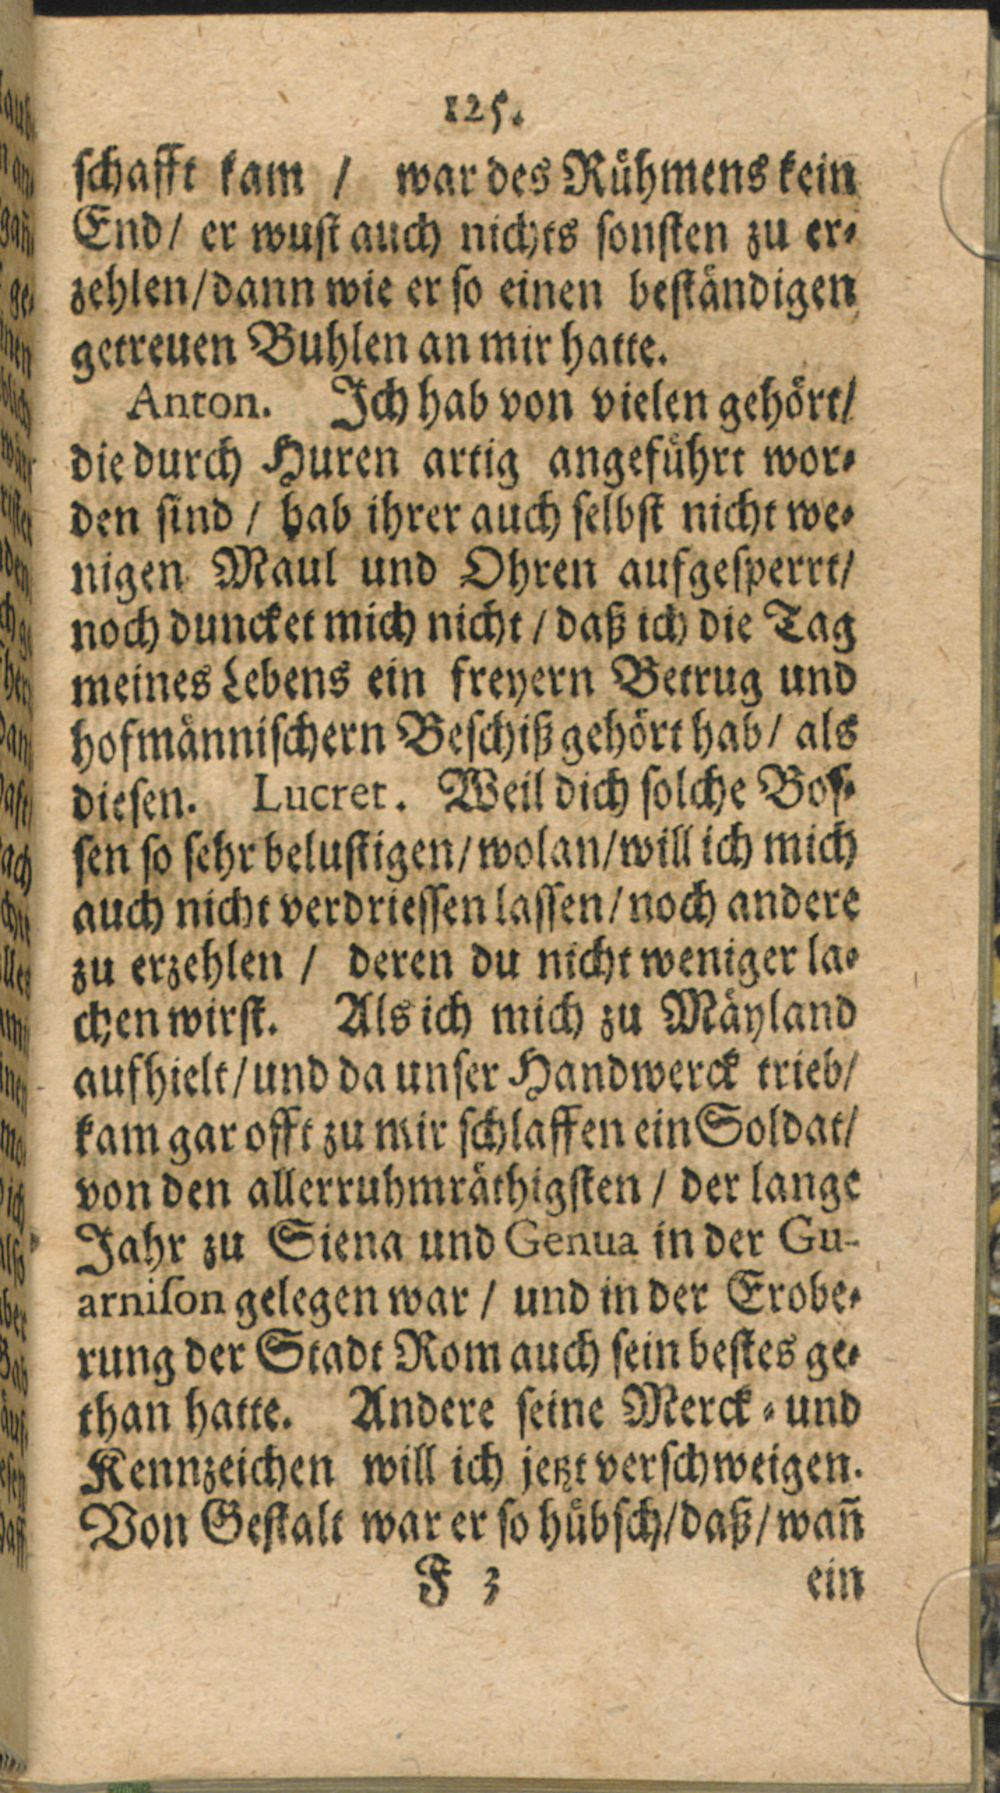 125.
schafft kam / war des Rühmens kein
End/ er wust auch nichts sonsten zu er-
zehlen/dann wie er so einen beständigen
getreuen Buhlen an mir hatte.
Anton. Ich hab von vielen gehört/
die durch Huren artig angeführt wor-
den sind / hab ihrer auch selbst nicht we-
nigen Maul und Ohren aufgesperrt/
noch duncket mich nicht / daß ich die Tag
meines Lebens ein freyern Betrug und
hofmännischern Beschiß gehört hab/ als
diesen. Lucret. Weil dich solche Bos-
sen so sehr belustigen/wolan/will ich mich
auch nicht verdriessen lassen/noch andere
zu erzehlen / deren du nicht weniger la-
chen wirst. Als ich mich zu Mäyland
aufhielt/und da unser Handwerck trieb/
kam gar offt zu mir schlaffen ein Soldat/
von den allerruhmräthigsten / der lange
Jahr zu Siena und Genua in der Gu-
arnison gelegen war / und in der Erobe-
rung der Stadt Rom auch sein bestes ge-
than hatte. Andere seine Merck- und
Kennzeichen will ich jetzt verschweigen.
Von Gestalt war er so hübsch/daß/wañ
F 3 ein